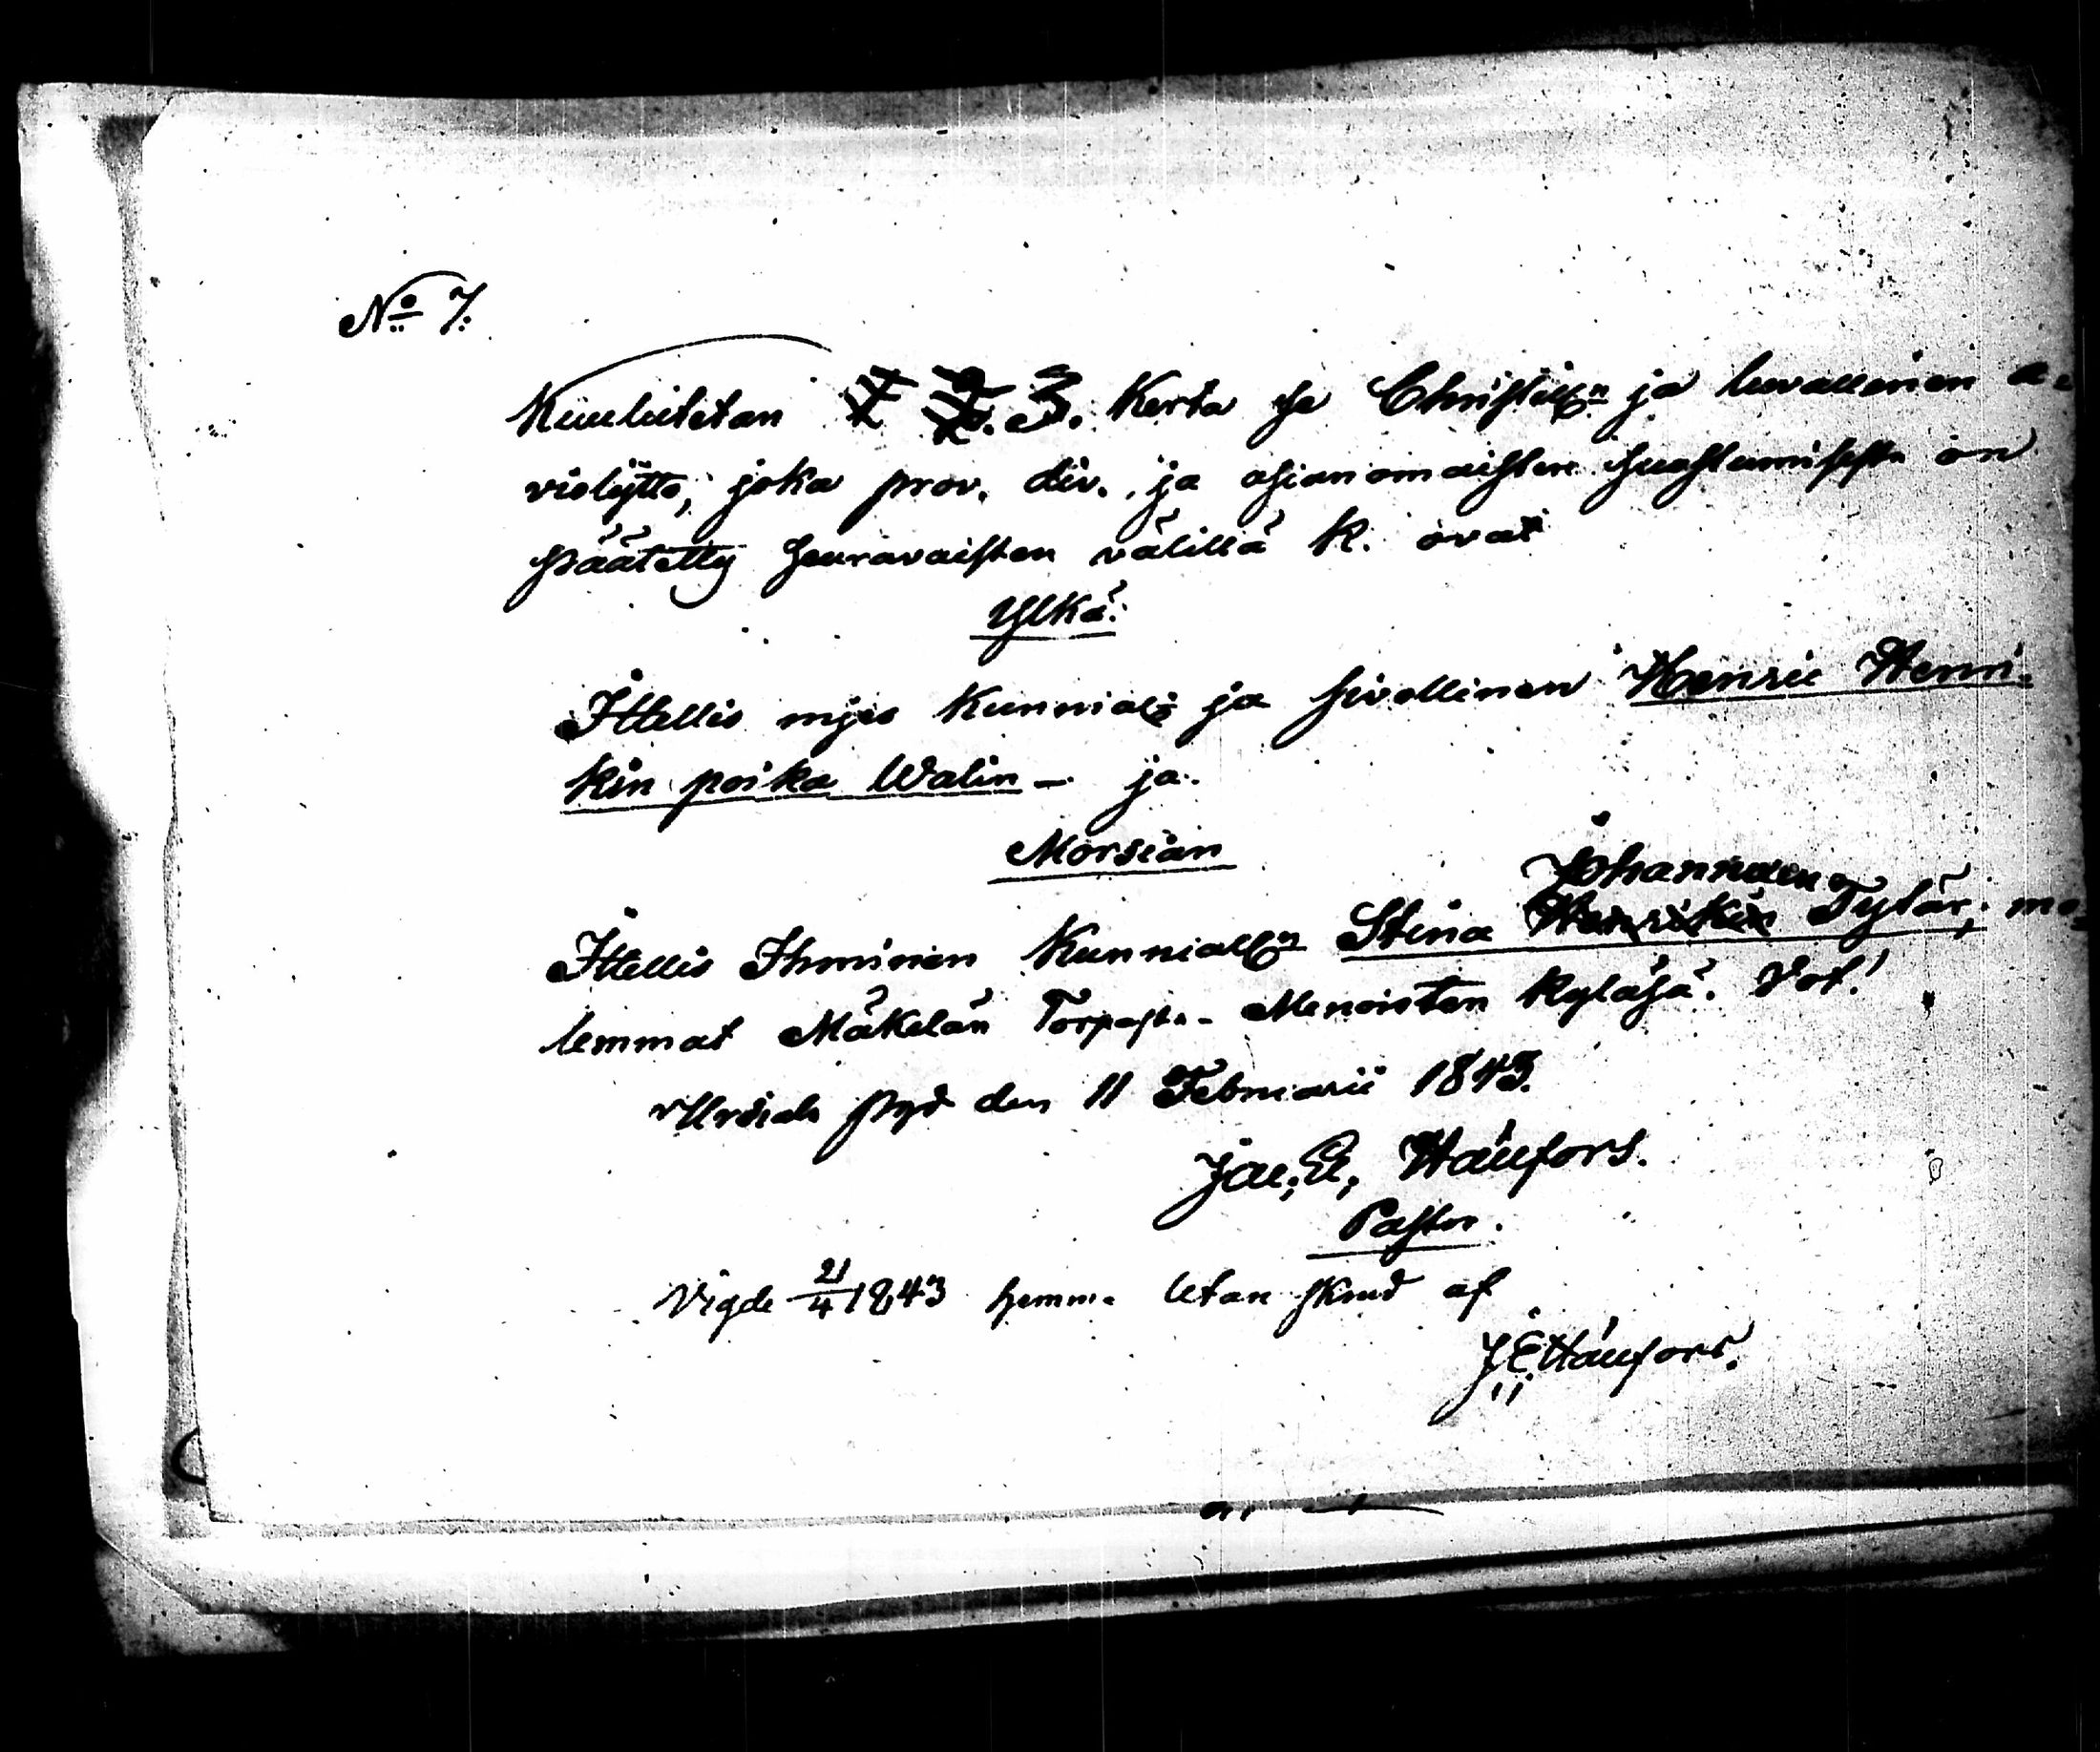 No 7.
Kuulutetan 1. 2. 3. Kerta se Christill:n ja luvallinen a-
violijtto, joka prov. div. ja asianomaisten suostumisesta on
päätetty seuravaisten välillä k. ovat
Ylkä:
Ittellis mjes Kunnial: ja sivollinen Henric Henri-
kin poika Walin - ja
Morsian
Johannexen
Ittellis Ihminen Kunniall:n Stina Henrikin Tytär, mo-
lemmat Mäkelän Torpasta - Menoisten kyläsä. Vot!
Ursiala pgd den 11 Februarii 1843.
Jac. E. Hänfors.
Pastor.
Vigde 21/4 1843 hemma utan skrud af
J. E. Hänfors.